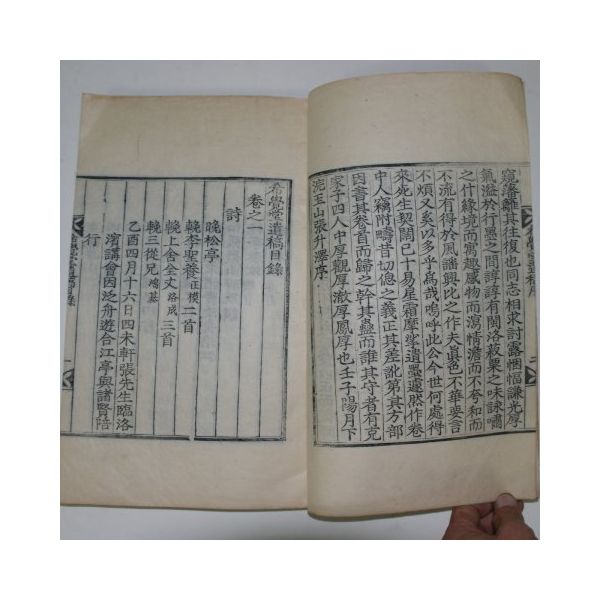 窺藩離其往復也同志相求討露悃愊謙光厚
氣溢於行墨之間諄諄有閩洛菽粟之味詠嘯
之什緣境而寓趣感物而瀉情澹而不夸和而
不流有得於風謠興比之作夫眞色不華要言
不煩又奚以多乎爲哉嗚呼此公今世何處得
來死生契闊已十易星霜摩挲遺墨遽然作卷
中人竊附疇昔切偲之義正其差訛第其方部
因書其卷首而歸之幹其蠱而誰其守者有克
家子四人中厚觀厚澈厚鳳厚也壬子陽月下
浣玉山張升澤序
希覺堂遺稿目錄
卷之一
詩
晚松亭
輓李聖養正模二首
輓上舍全丈洛成三首
輓三從兄鴻基
乙酉四月十六日四未軒張先生臨洛
濱講會因泛舟遊合江亭與諸賢陪
行